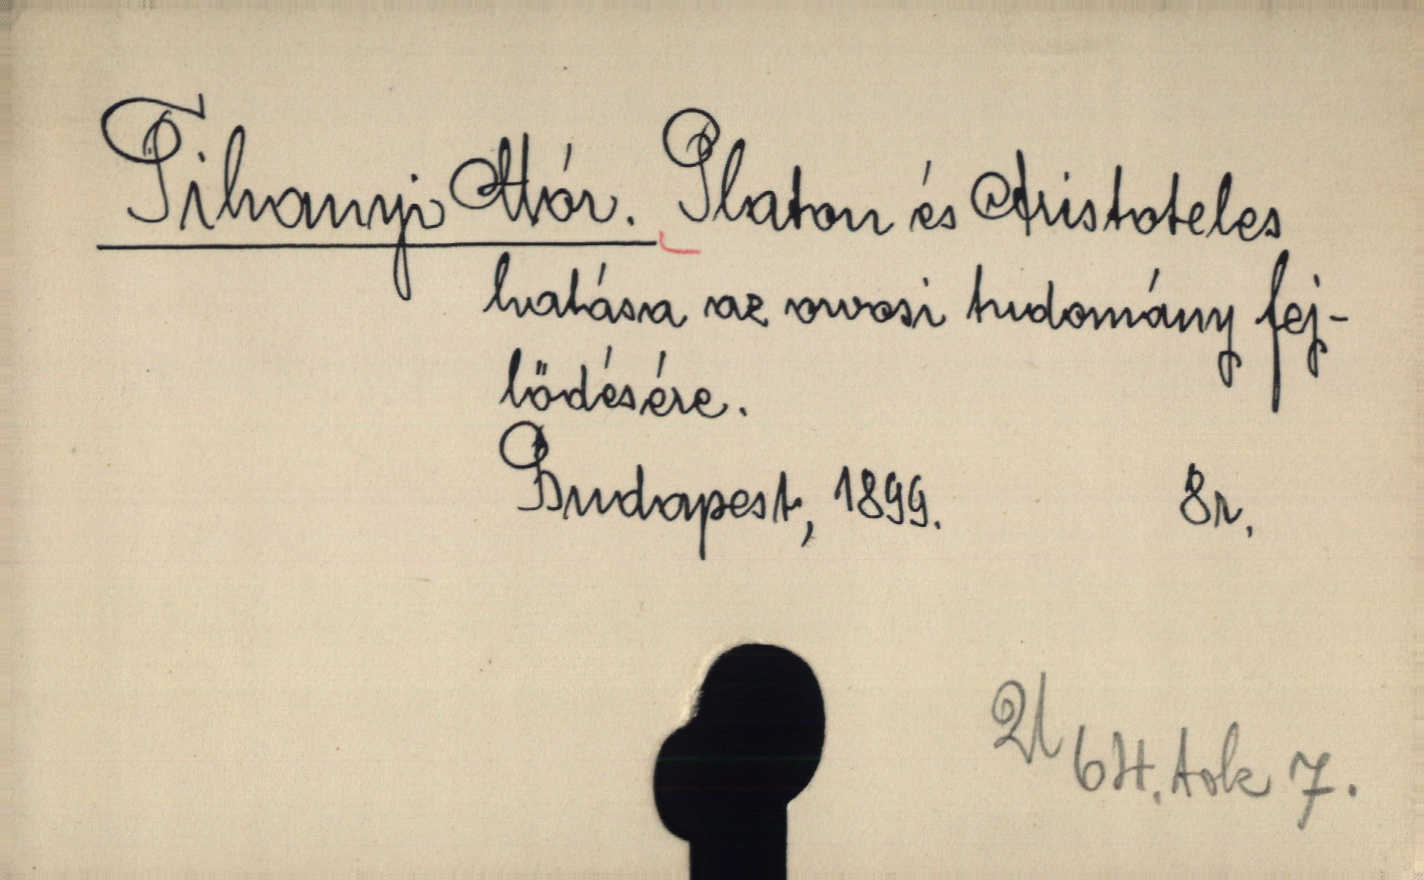 Tihanyi Mór. Platon és Aristoteles
hatása az orvosi tudomány fej-
lődésére.
Budapest, 1899. 8r.
tok 7.